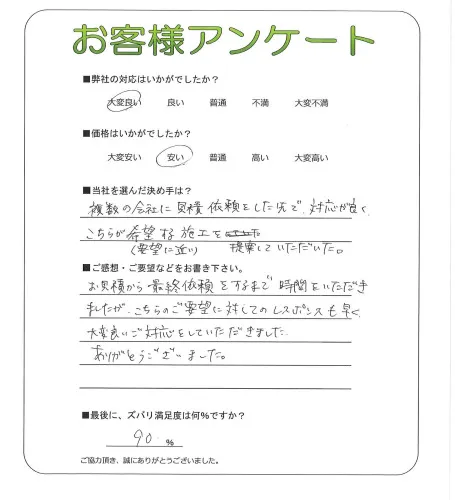 お客様アンケート
■弊社の対応はいかがでしたか？
大変良い 良い 普通 不満 大変不満
■価格はいかがでしたか？
大変安い 安い 普通 高い 大変高い
■当社を選んだ決め手は？
複数の会社に見積依頼をした先で、対応が良く
こちらが希望する施工を
(要望に近い) 提案していただいた。
■ご感想・ご要望などをお書き下さい。
お見積から最終依頼をするまで時間をいただき
ましたが、こちらのご要望に対してのレスポンスも早く
大変良いご対応をしていただきました。
ありがとうございました。
■最後に、ズバリ満足度は何%ですか？
90 %
ご協力頂き、誠にありがとうございました。